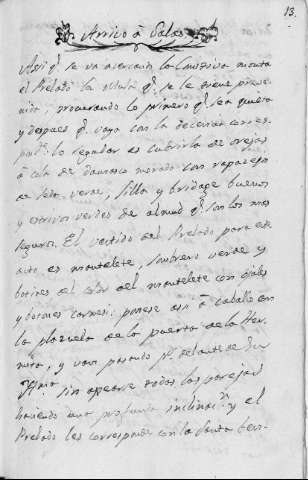 13.
Arrivo à Palac.º
Assi q.e se va acercando la Comitiva monta
el Prelado la Mula q.e se le tiene preve-
nida, procurando lo primero q.e sea quieta
y despues q.e vaya con la decencia corres-
pond.te lo regular es cubrirla de orejas
à cola de Damasco morado con rapacejo
de seda verde, silla y bridage buenos
y estrivos verdes de almud q.e son los mas
seguros. El vestido del Prelado para este
acto es mantelete, sombrero verde y
botines del color del mantelete con ojales
y botones carmesi: ponese assi à caballo en
la plazuela de la puerta de la Her-
mita, y van pasando p.r delante de su
Ill.ma sin apearse todas las parejas
haciendo una profunda inclinac.n y el
Prelado les corresponde con la Santa ben-